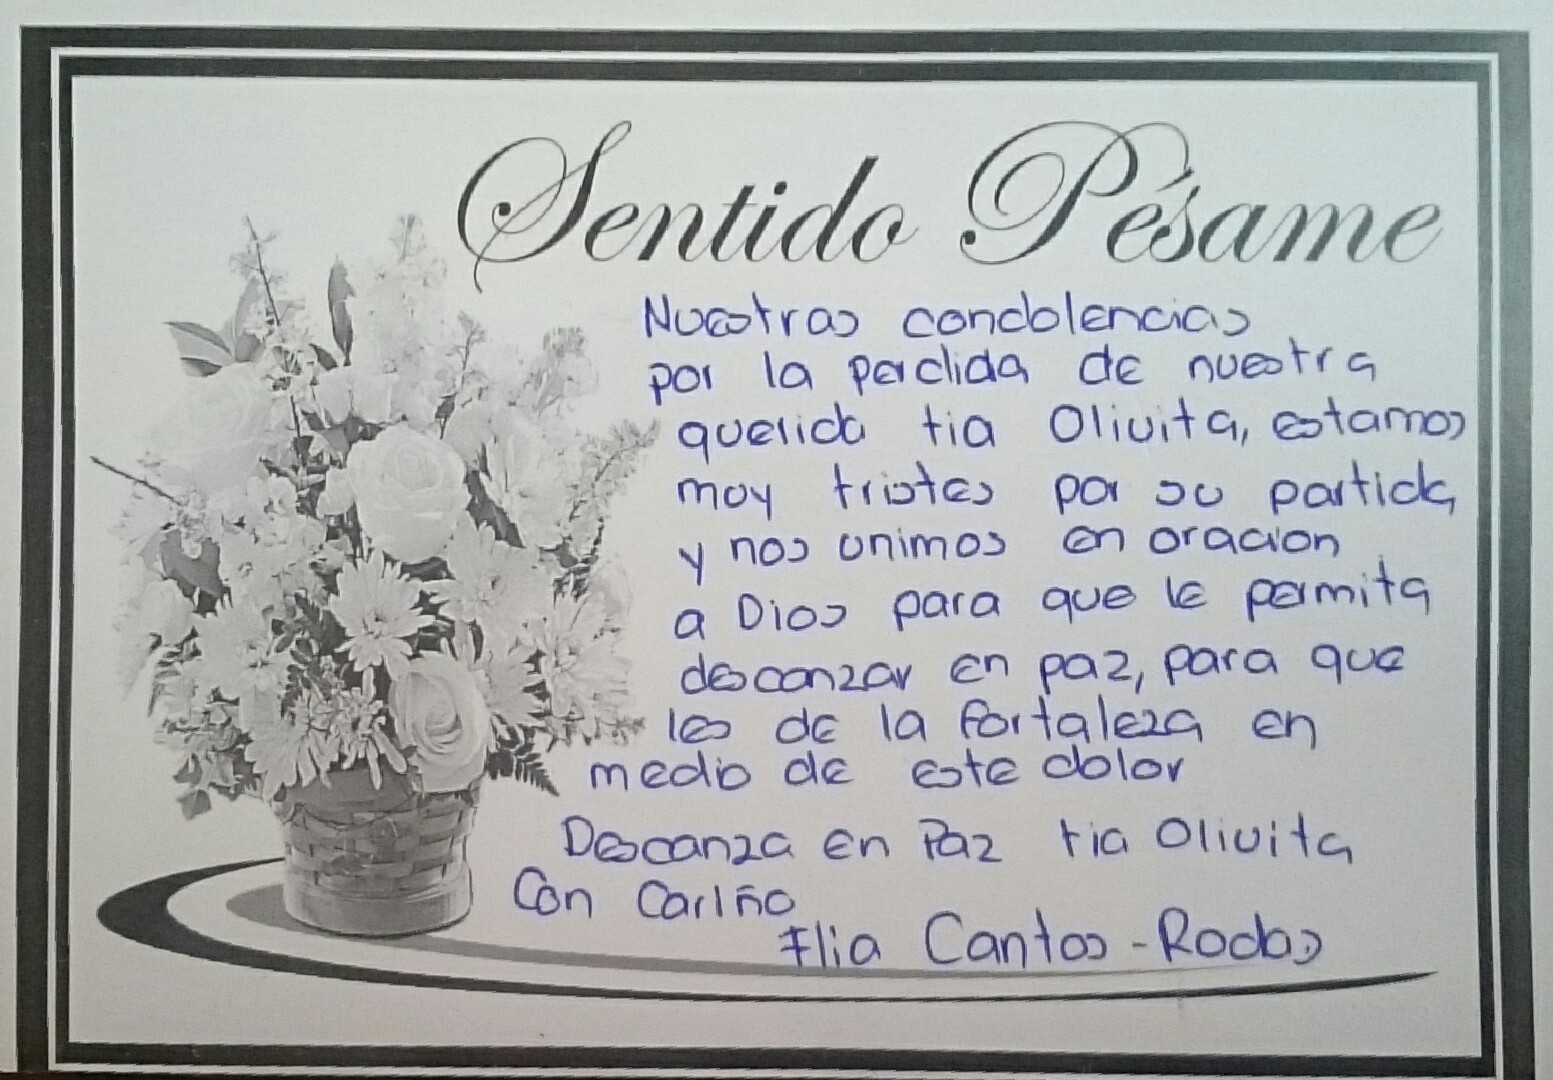 Sentido Pésame
Nuestras condolencias
por la perdida de nuestra
querida tia Olivita, estamos
muy tristes por su partida
y nos unimos en oracion
a Dios para que le permita
descanzar en paz, para que
les de la fortaleza en
medio de este dolor
Descanza en Paz tia Olivita
Con Cariño
Flia Cantos - Rodas